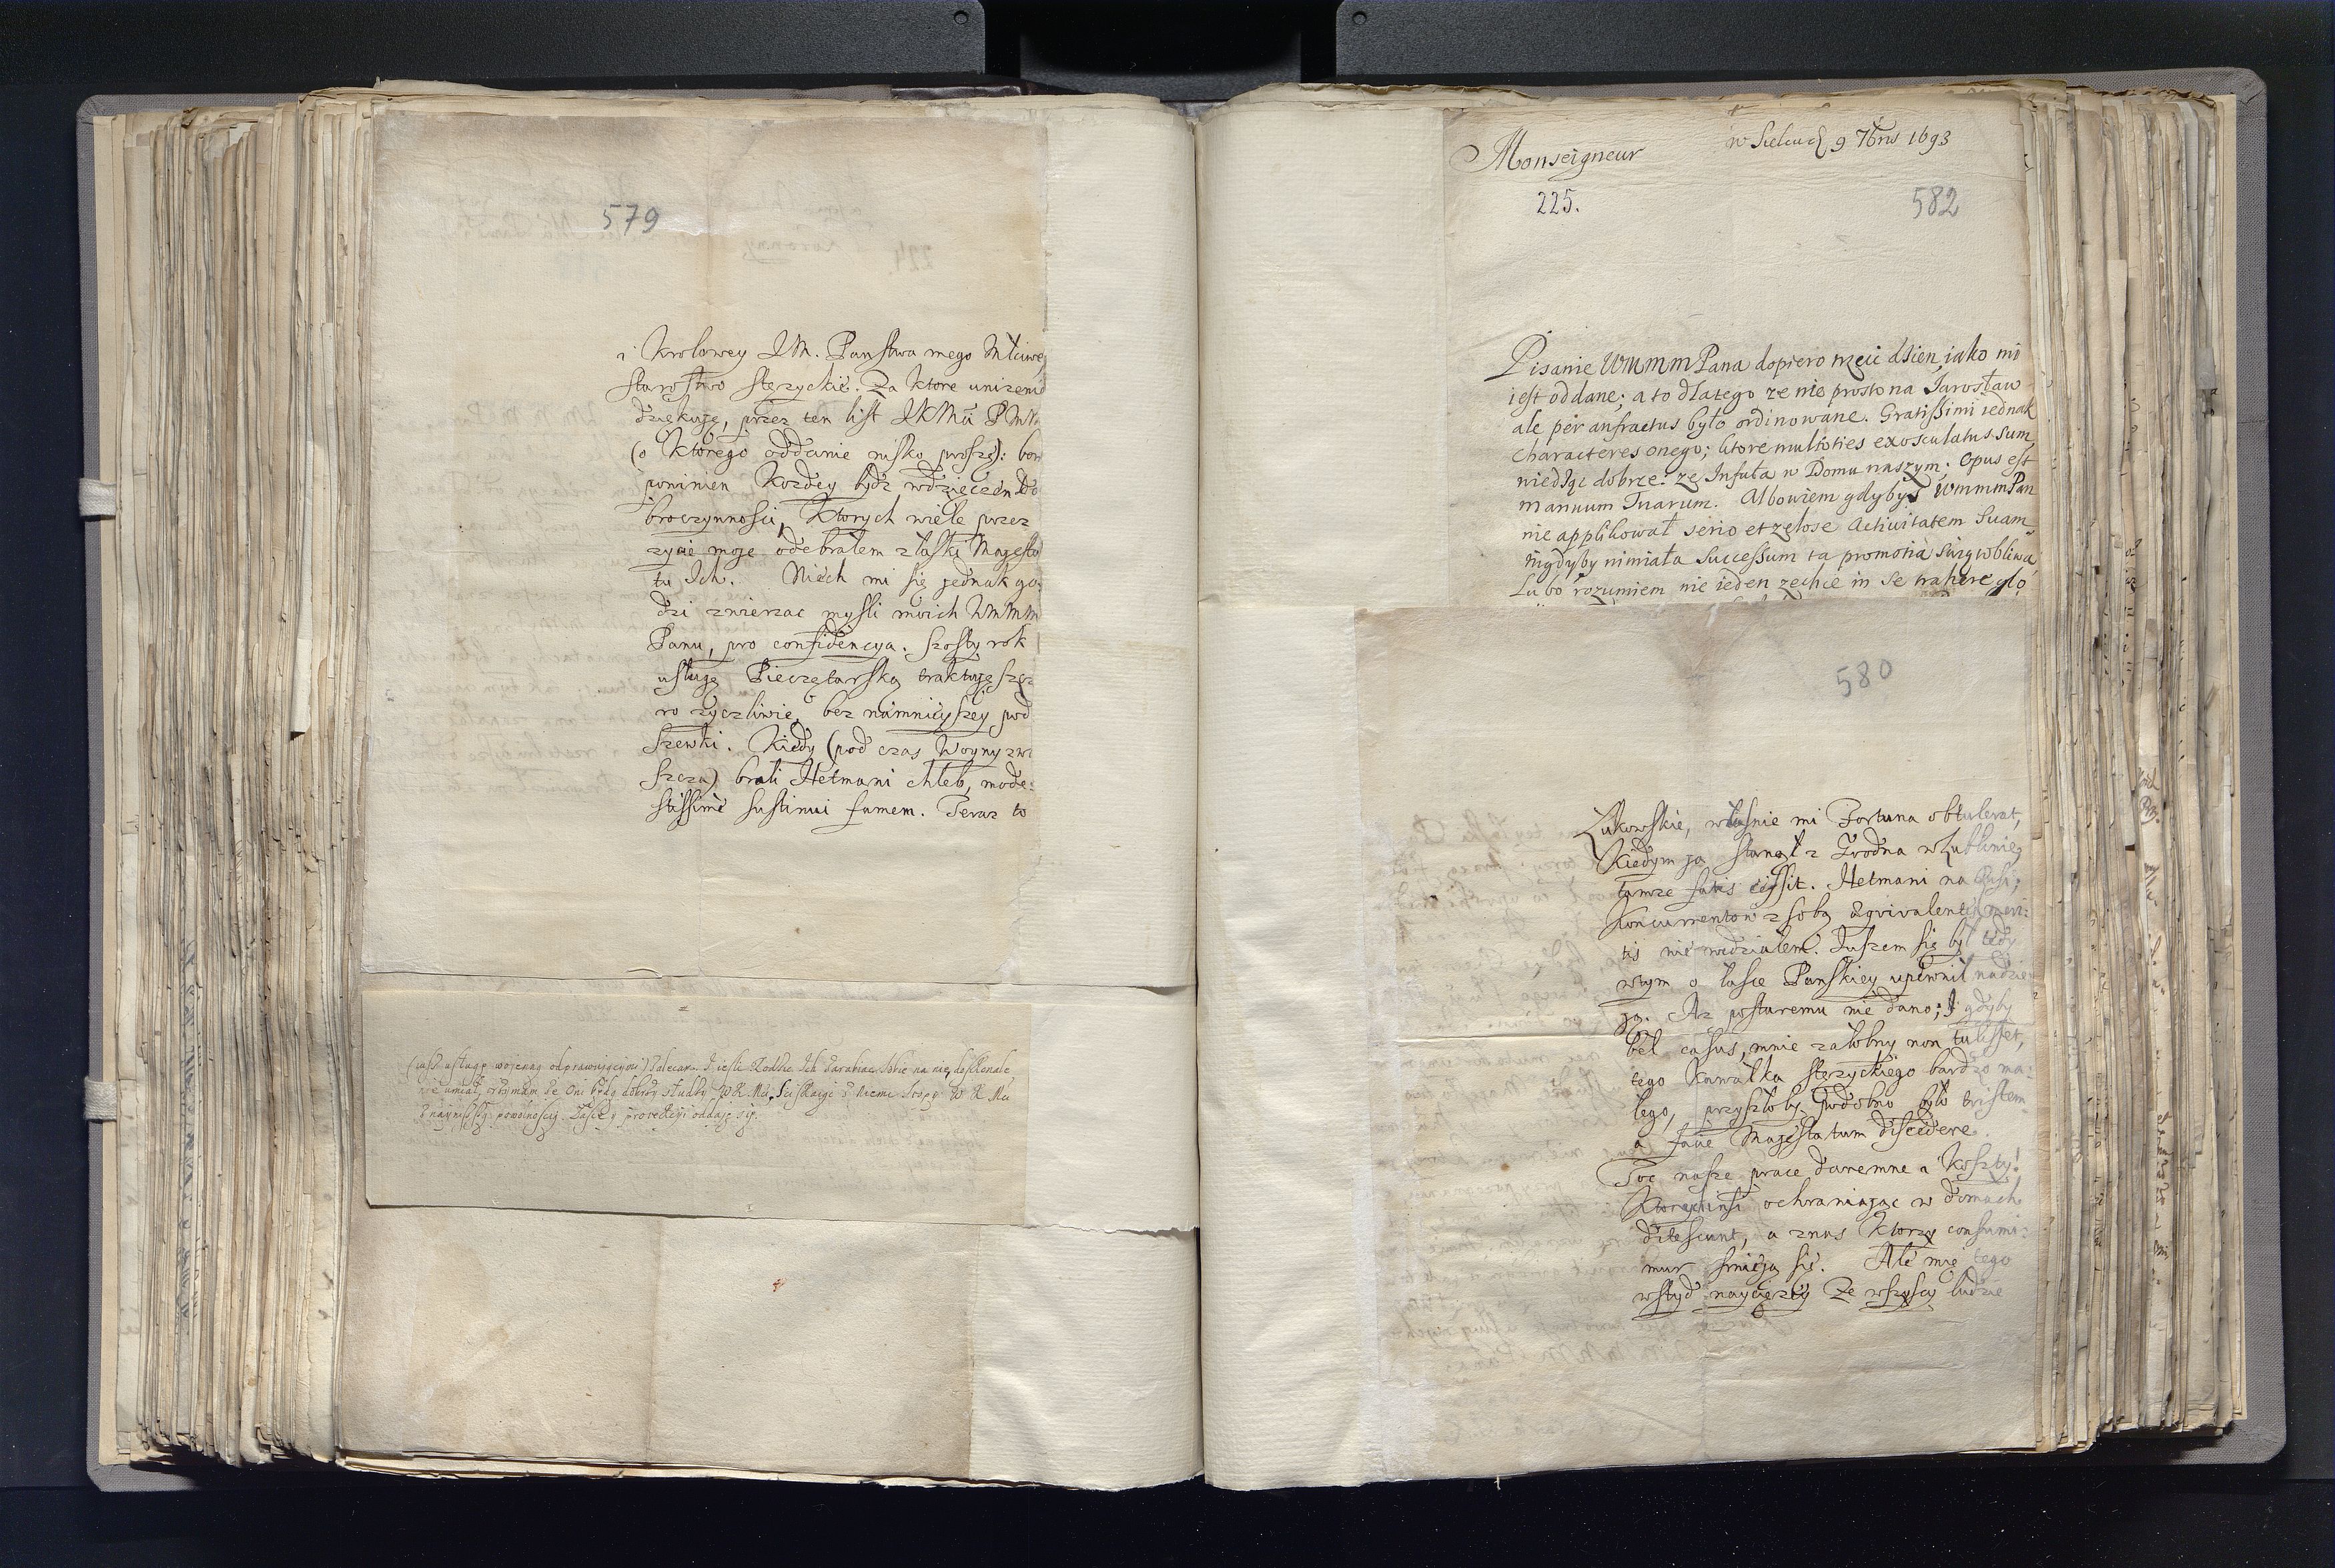 579
i Krolowey JM. Panstwa mego Młciwe
starostwo stęzyckie. Za ktore unizenie
dziękuję, przez ten list JKMci PMM
(o ktorego oddanie nisko proszę): bom
powinien kozdey bydz wdzięczen Do
broczynnosci, ktorych wiele przez
zycie moje odebrałem z łaski Majesta
tu Ich. Niech mi się jednak go:
dzi zwierzac mysli moich WMMM
Panu, pro confidencya. Szosty rok
usługę Pieczętarską traktuję szcze
ro zyczliwie, bez namnieyszey pod
szewki. Kiedy (pod czas Woyny zwł
szcza) brali Hetmani chleb, mode:
stissimè sustinui famem. Teraz to
(iusz usługę wojenną odprawuiącymi) zalecam. I iesli
nie umiał, trzymam ze oni będą dobrzy słudzy WKMci, sciskaiąc z niemi stopy W K Mci
z nayniszszą powolnoscią łasce y protekcyi oddaię się.
Monseigneur
w Sielcach 9 7bris 1693
225.
582
Pisanie WMMMPana dopiero trzeci dzien, iako mi
iest oddane; a to dlatego ze nie prosto na Jarosław
ale per anfractus było ordinowane. Gratissimi iednak
characteres onego; ktore multoties exosculatus sum,
wiedząc dobrze: ze Infuła w Domu naszym: Opus est
manuum Tuarum. Albowiem gdybyś WmmmPan
nie applikował serio et zelose Activitatem Suam
nigdyby nimiała Successum ta promotia
Lubo rozumiem nie ieden zechce in se trahere glo
580
Łukowskie, własnie mi Fortuna obtulerat,
kiedym ja stanął z Grodna w Lublinie,
tamze fatis cessit. Hetmani na Rusi;
Konkurrentow z sobą aequivalentis meri:
tis nie widziałem. Juszem się był tedy
wtym o łasce Panskiey upewnił nadzie
ją. Az postaremu nie dano; I gdyby
był casus, mnie załobny non tulisset,
tego kawałka stęzyckiego bardzo ma:
łego, przyszłoby podobno było tristem
a facie Majestatum discedere.
Toć nasze prace daremne i koszty!
ktorych insi ochraniając w domach
ditescunt, a z nas ktorzy consumi:
mur smieją się. Ale mię tego
wstyd naycięzszy ze wszyscy ludzie